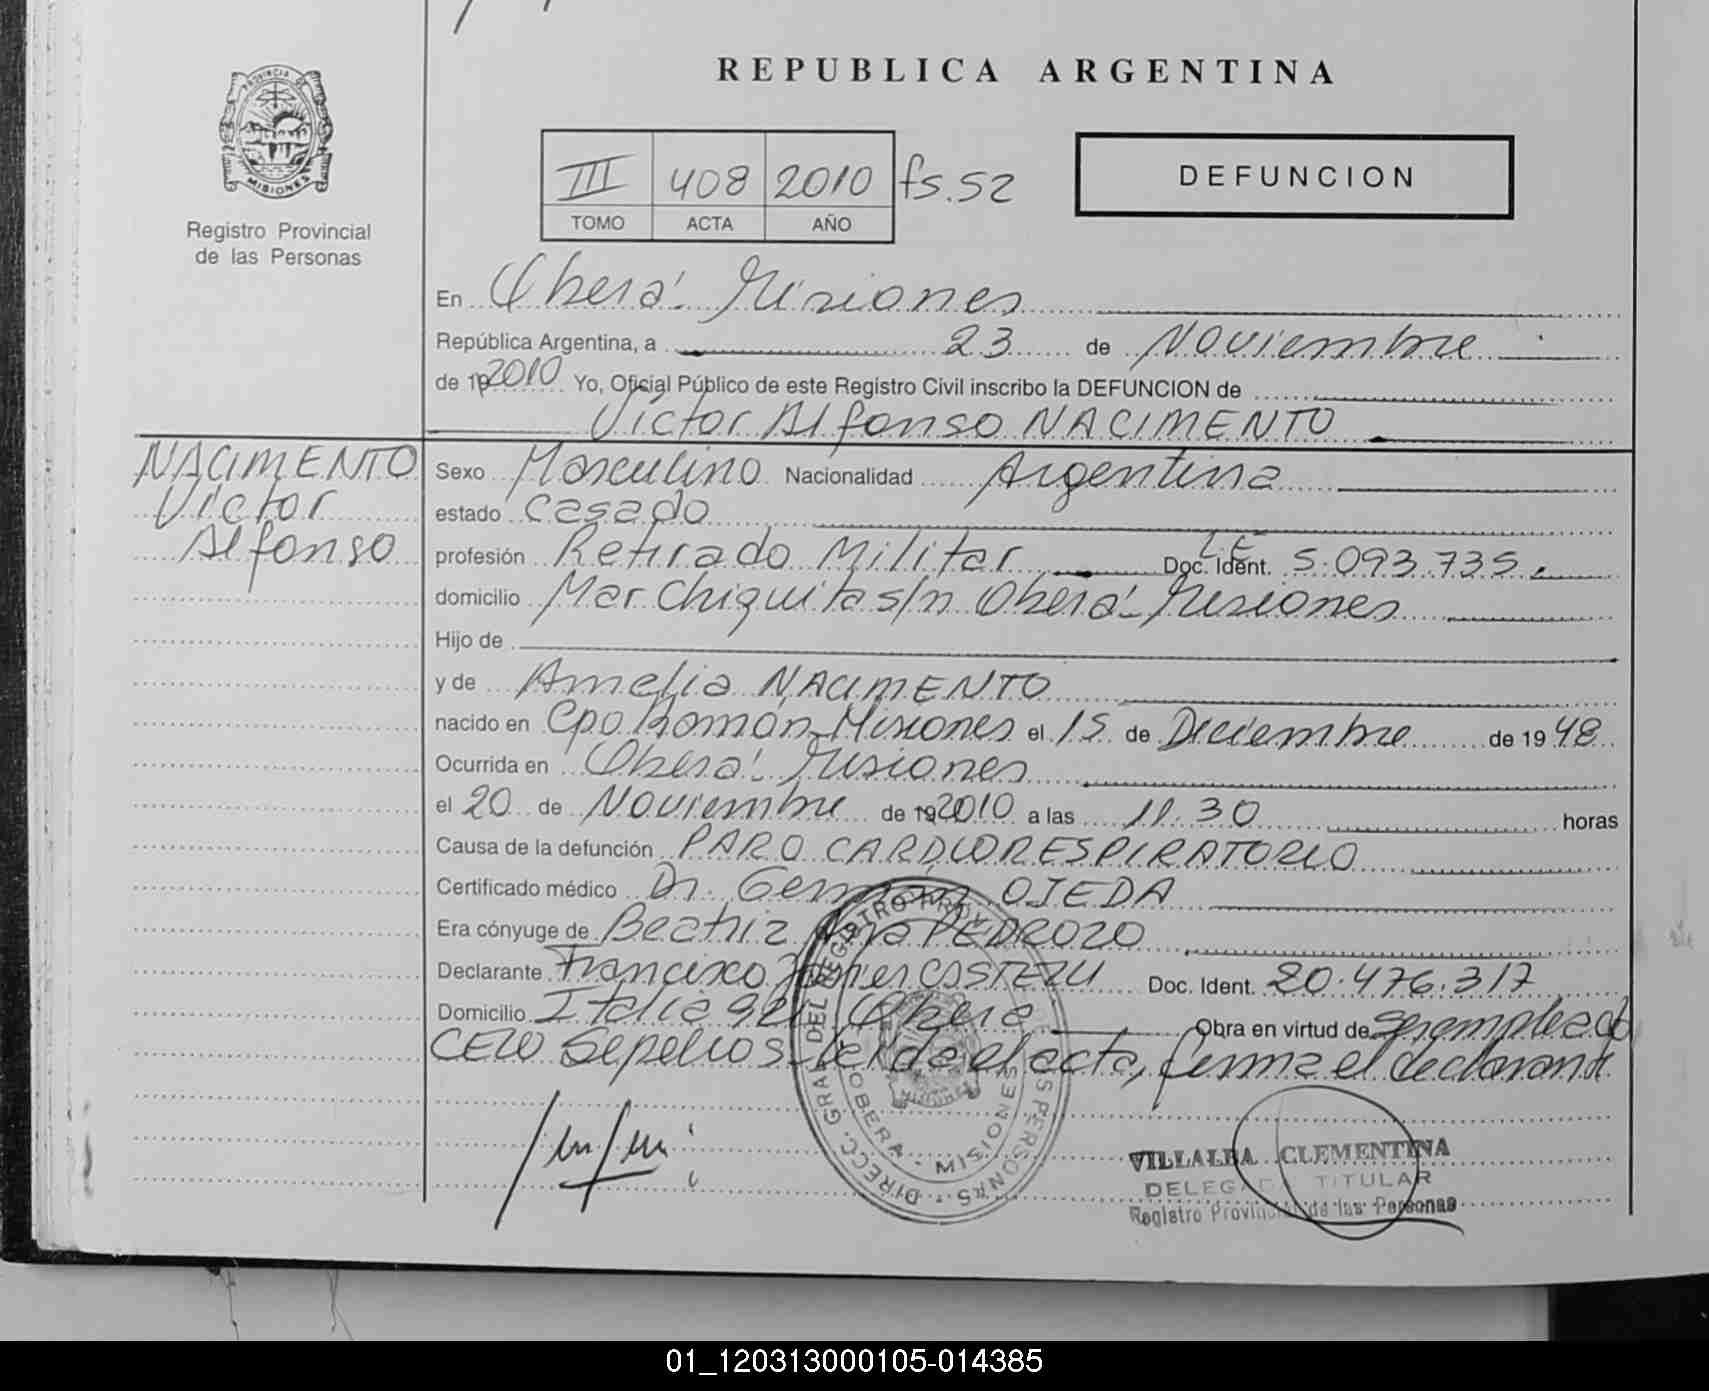 REPUBLICA ARGENTINA
PROVINCIA DE
MISIONES
III 408 2010 fs. 52
TOMO ACTA AÑO
DEFUNCION
Registro Provincial
de las Personas
En Oberá - Misiones
República Argentina, a 23 de Noviembre
de 19 2010 Yo, Oficial Público de este Registro Civil inscribo la DEFUNCION de
Víctor Alfonso NACIMENTO
NACIMENTO
Víctor
Alfonso
Sexo Masculino Nacionalidad Argentina
estado casado
profesión Retirado Militar Doc. Ident. L.E 5.093.735
domicilio Mar Chiquita s/n Oberá - Misiones
Hijo de
y de Amelia NACIMENTO
nacido en Cpo Ramón - Misiones el 15 de Diciembre de 19 48
Ocurrida en Oberá - Misiones
el 20 de Noviembre de 19 2010 a las 11.30 horas
Causa de la defunción PARO CARDIORESPIRATORIO
Certificado médico Dr. Germán OJEDA
Era cónyuge de Beatriz Ana PEDROZO
Declarante Francisco Javier Doc. Ident. 20.476.317
Domicilio Italia Oberá Obra en virtud de ser empleado
Sepelios - leída el acta, firma el declarante
DIRECC. GRAL DEL REGISTRO PROV. DE LAS PERSONAS
OBERA - MISIONES
VILLALBA CLEMENTINA
DELEGADA TITULAR
Registro Provincial de las Personas
01_120313000105-014385